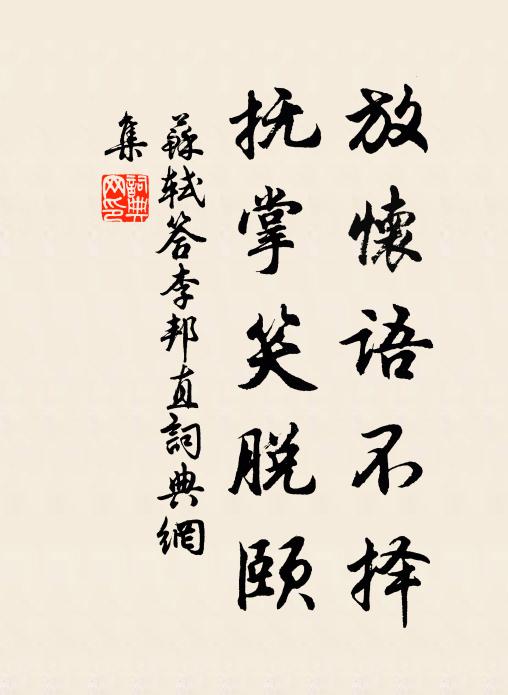 放懷語不择
抚掌笑脱颐
蘇軾答李邦直詞典網
集
詞典
网印